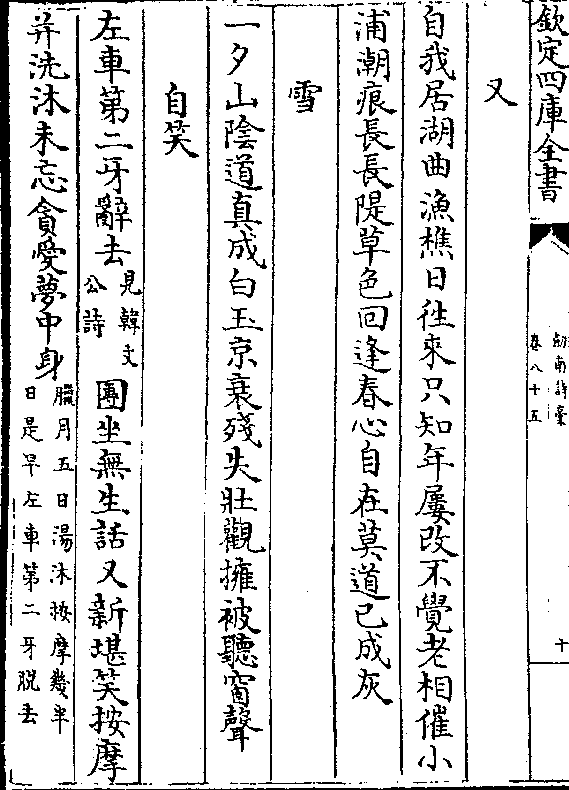 欽定四庫全書
劍南詩稾
卷八十五
十
又
自我居湖曲漁樵日徃來只知年屢改不覺老相催小
浦潮痕長長隄草色回逢春心自在莫道已成灰
雪
一夕山陰道真成白玉京衰殘失壯觀擁被聽窗聲
自笑
左車第二牙辭去見韓文公詩團坐無生話又新堪笑按摩
并洗沐未忘貪愛夢中身臘月五日湯沐按摩幾半日是早左車第二牙脱去